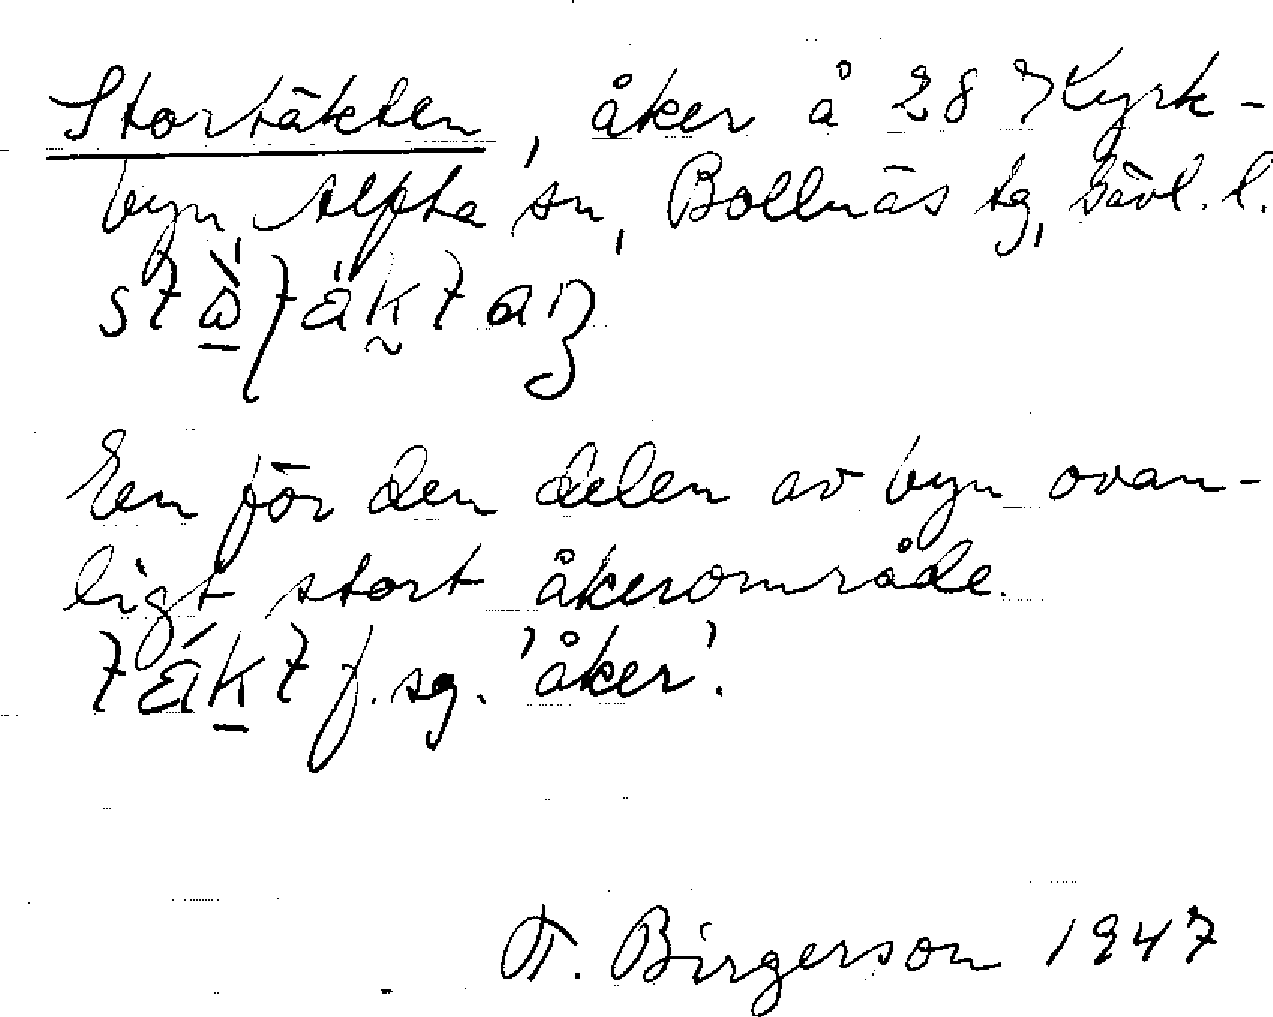 Stortäkten, åker å 28 Kyrk-
byn, Alfta sn, Bollnäs tg, Gävl. l.
Een för den delen av byn ovan-
ligt stort åkerområde.
f. sg. 'åker'.
T. Birgerson 1947